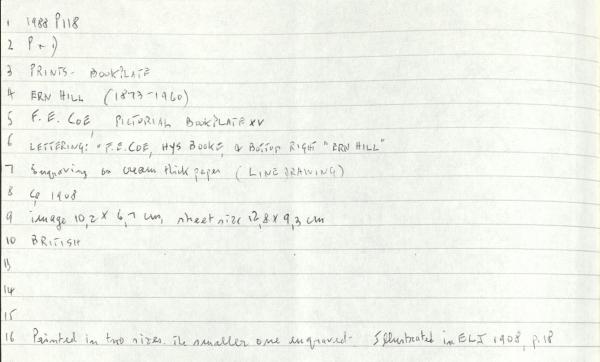 1 1988 P118
2 P + D
3 PRINTS - BOOKPLATE
4 ERN HILL (1873-1960)
5 F. E. COE, PICTORIAL BOOKPLATE XV
6 LETTERING: "F.E. COE, HYS BOOKE, & Bottom RIGHT "ERN HILL"
7 Engraving on cream thick paper (LINE DRAWING)
8 1908
9 image 10,2 x 6,7 cm, sheet size 12,8 x 9,3 cm
10 BRITISH
13
14
15
16 Printed in two sizes. the smaller one engraved - Illustrated in ELJ 1908, p.18